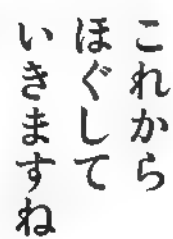 これから
ほぐして
いきますね